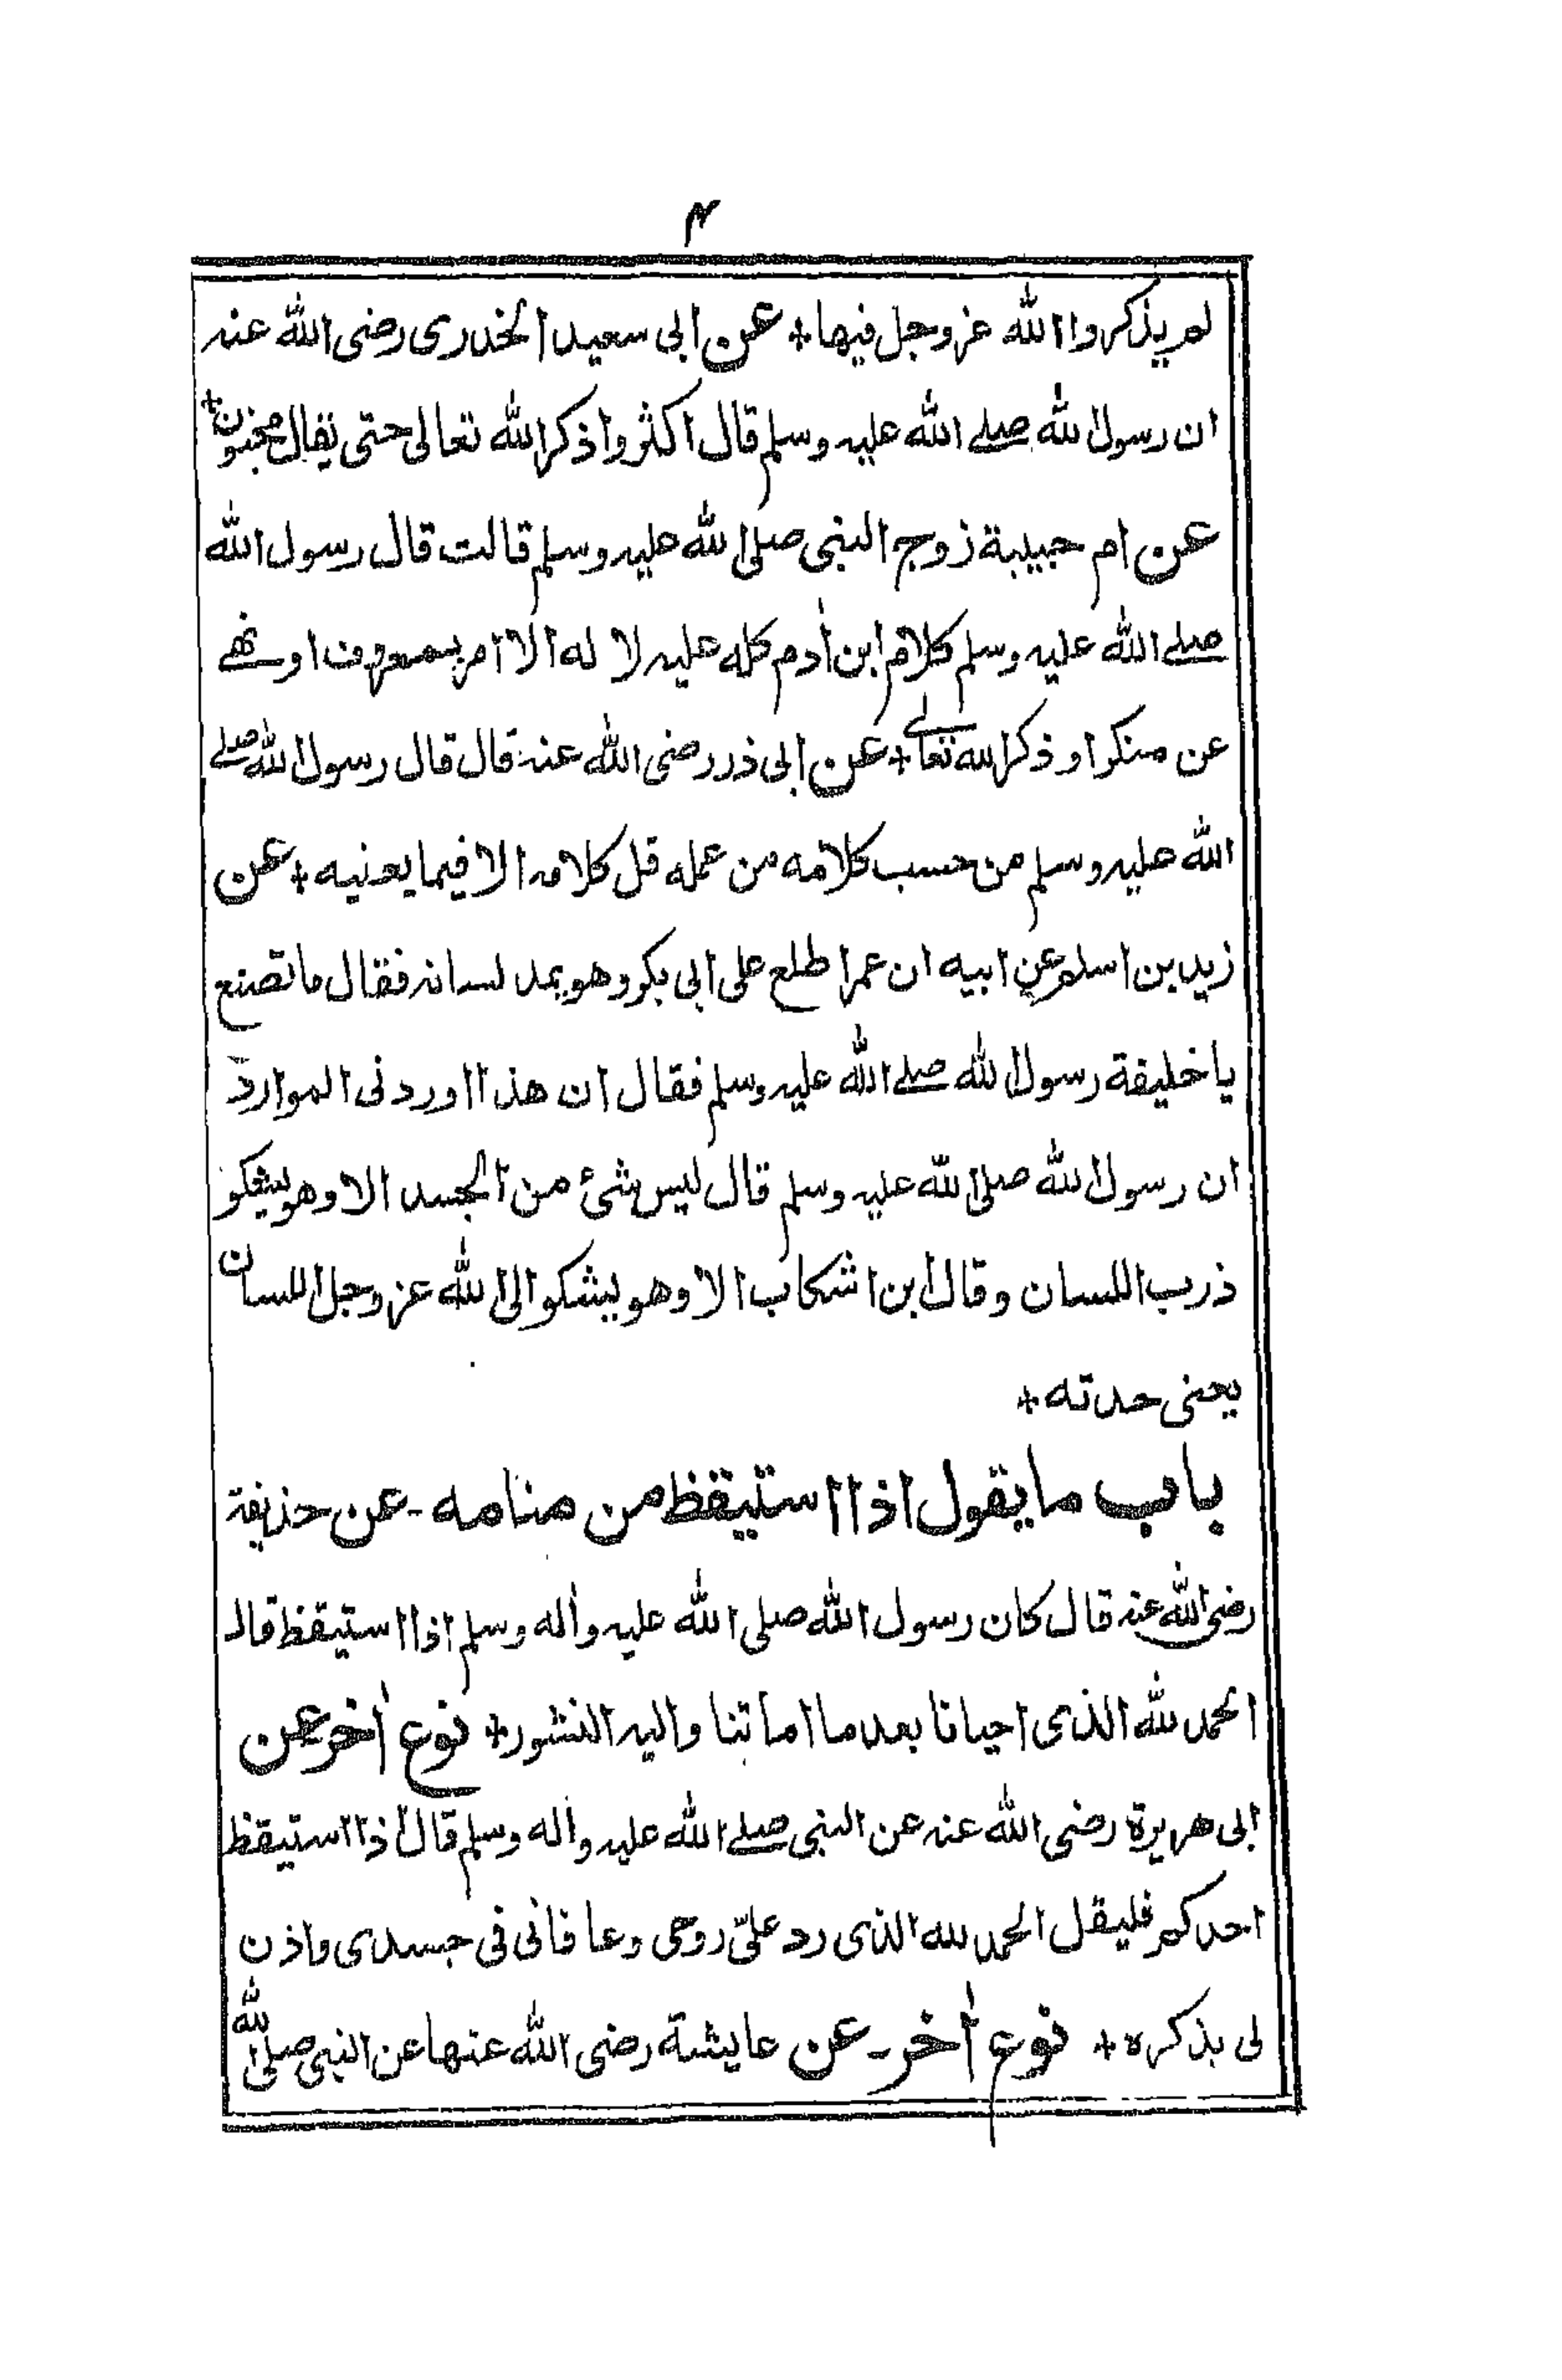 ۴
لم يذكروا الله عز وجل فيها + عن ابى سعيد الخدرى رضى الله عنه
ان رسول الله صلے الله عليه وسلم قال اكثروا ذكر الله تعالى حتى يقال مجنون +
عن ام حبيبة زوج النبى صلى الله عليه وسلم قالت قال رسول الله
صلے الله عليه وسلم كلام ابن اٰدم كله عليه لا له الا امر بمعروف او نهے
عن منكر او ذكر الله تعالے + عن ابى ذر رضى الله عنه قال قال رسول الله صلے
الله عليه وسلم من حسب كلامه من عمله قل كلامه الا فيما يعنيه + عن
زيد بن اسلم عن ابيه ان عمر اطلع على ابى بكر وهو يمد لسانه فقال ما تصنع
يا خليفة رسول الله صلے الله عليه وسلم فقال ان هذا اوردنى الموارد
ان رسول الله صلى الله عليه وسلم قال ليس شئ من الجسد الا وهو يشكو
ذرب اللسان وقال ابن اشكاب الا وهو يشكو الى الله عز وجل اللسان
يعنى حدته +
باب ما يقول اذا استيقظ من منامه - عن حذيفة
رضى الله عنه قال كان رسول الله صلى الله عليه واٰله وسلم اذا استيقظ قال
الحمد لله الذى احيانا بعد ما اماتنا واليه النشور + نوع اٰخر عن
ابى هريرة رضى الله عنه عن النبى صلے الله عليه واٰله وسلم قال اذا استيقظ
احدكم فليقل الحمد لله الذى رد علىّ روحى وعافانى فى جسدى واذن
لى بذكره + نوع اٰخر - عن عايشة رضى الله عنها عن النبى صلى الله